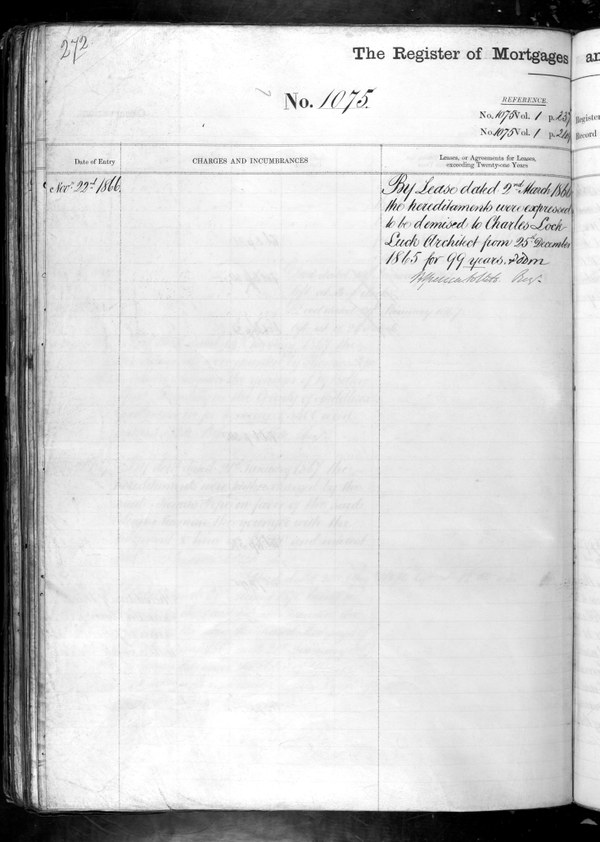 272
The Register of Mortgages an
No. 1075.
REFERENCE.
No. 1075 Vol. 1 p. 237
No. 1075 Vol. 1 p.
Register
Record
Date of Entry
CHARGES AND INCUMBRANCES
Leases, or Agreements for Leases,
exceeding Twenty-one Years
Novr. 22d. 1866.
By Lease dated 2nd March 1866
the hereditaments were expressed
to be demised to Charles Lock
Luck Architect from 25th December
1865 for 99 years